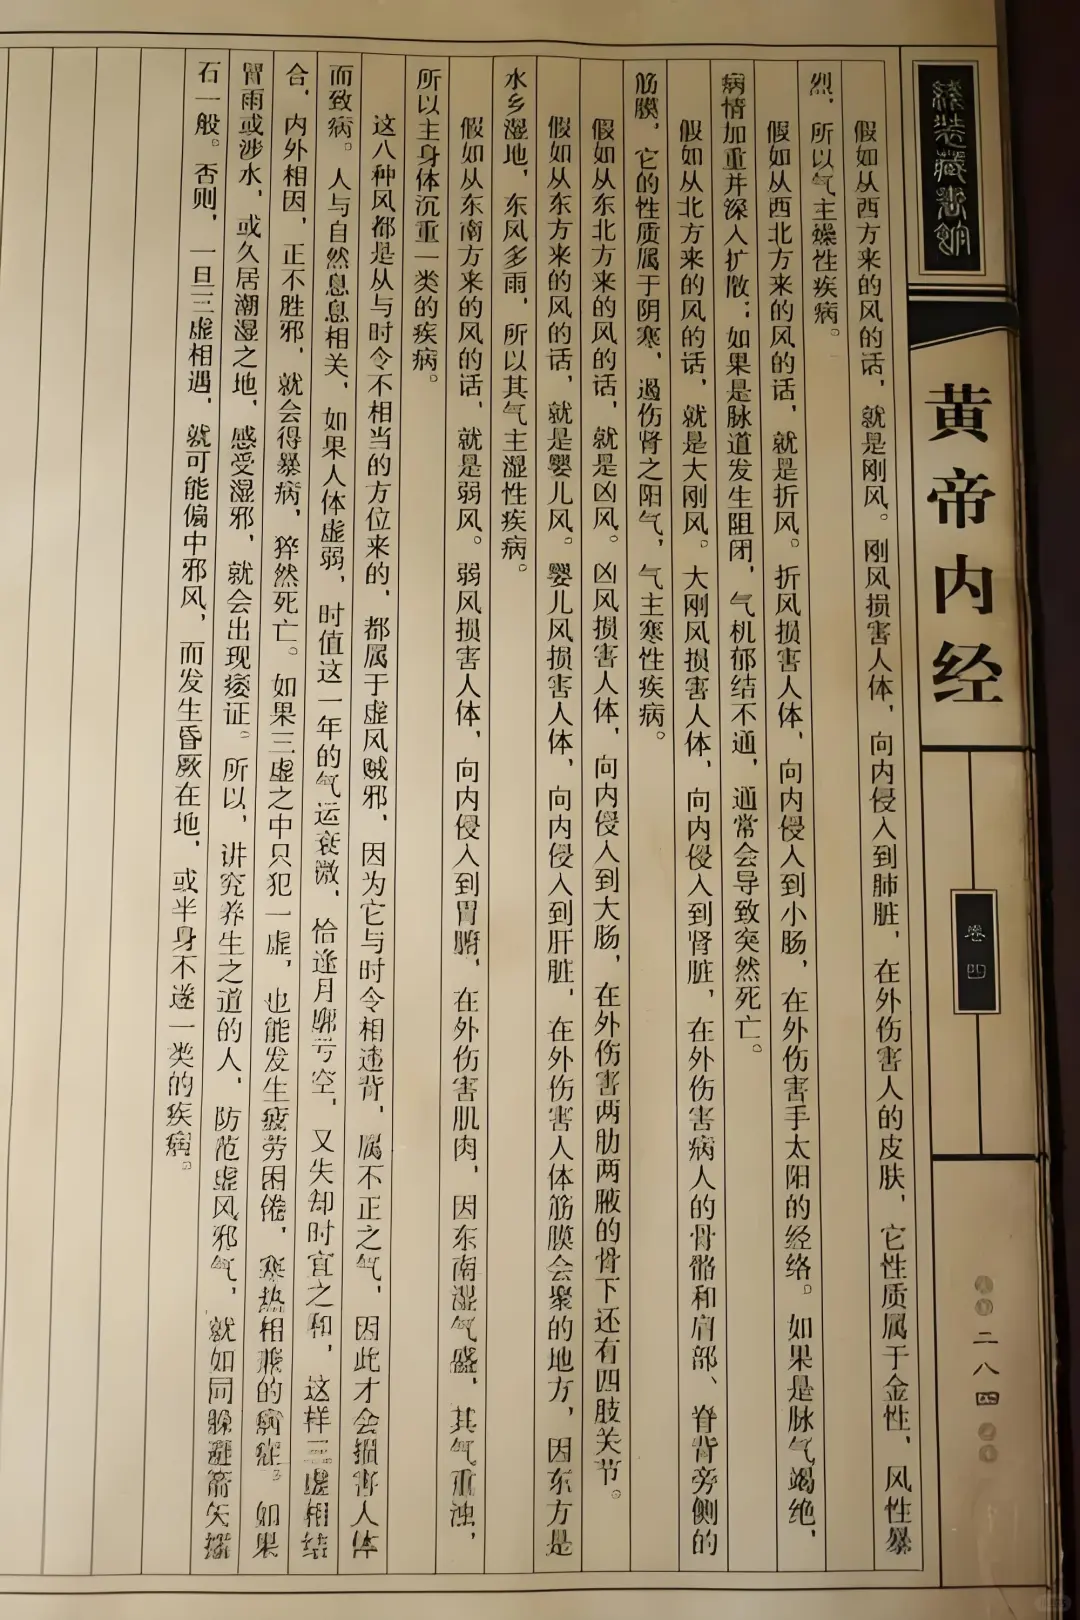 线装藏书馆
黄帝内经
卷四
二八四
假如从西方来的风的话，就是刚风。刚风损害人体，向内侵入到肺脏，在外伤害人的皮肤，它性质属于金性，风性暴
烈，所以气主燥性疾病。
假如从西北方来的风的话，就是折风。折风损害人体，向内侵入到小肠，在外伤害手太阳的经络。如果是脉气竭绝，
病情加重并深入扩散；如果是脉道发生阻闭，气机郁结不通，通常会导致突然死亡。
假如从北方来的风的话，就是大刚风。大刚风损害人体，向内侵入到肾脏，在外伤害病人的骨骼和肩部、脊背旁侧的
筋膜，它的性质属于阴寒，遏伤肾之阳气，气主寒性疾病。
假如从东北方来的风的话，就是凶风。凶风损害人体，向内侵入到大肠，在外伤害两肋两腋的骨下还有四肢关节。
假如从东方来的风的话，就是婴儿风。婴儿风损害人体，向内侵入到肝脏，在外伤害人体筋膜会聚的地方，因东方是
水乡湿地，东风多雨，所以其气主湿性疾病。
假如从东南方来的风的话，就是弱风。弱风损害人体，向内侵入到胃腑，在外伤害肌肉，因东南湿气盛，其气重浊，
所以主身体沉重一类的疾病。
这八种风都是从与时令不相当的方位来的，都属于虚风贼邪，因为它与时令相违背，属不正之气，因此才会损害人体
而致病。人与自然息息相关，如果人体虚弱，时值这一年的气运衰微，恰逢月廓亏空，又失却时宜之和，这样三虚相结
合，内外相因，正不胜邪，就会得暴病，猝然死亡。如果三虚之中只犯一虚，也能发生疲劳困倦，寒热相兼的病症。如果
冒雨或涉水，或久居潮湿之地，感受湿邪，就会出现痿证。所以，讲究养生之道的人，防范虚风邪气，就如同躲避箭矢
石一般。否则，一旦三虚相遇，就可能偏中邪风，而发生昏厥在地，或半身不遂一类的疾病。